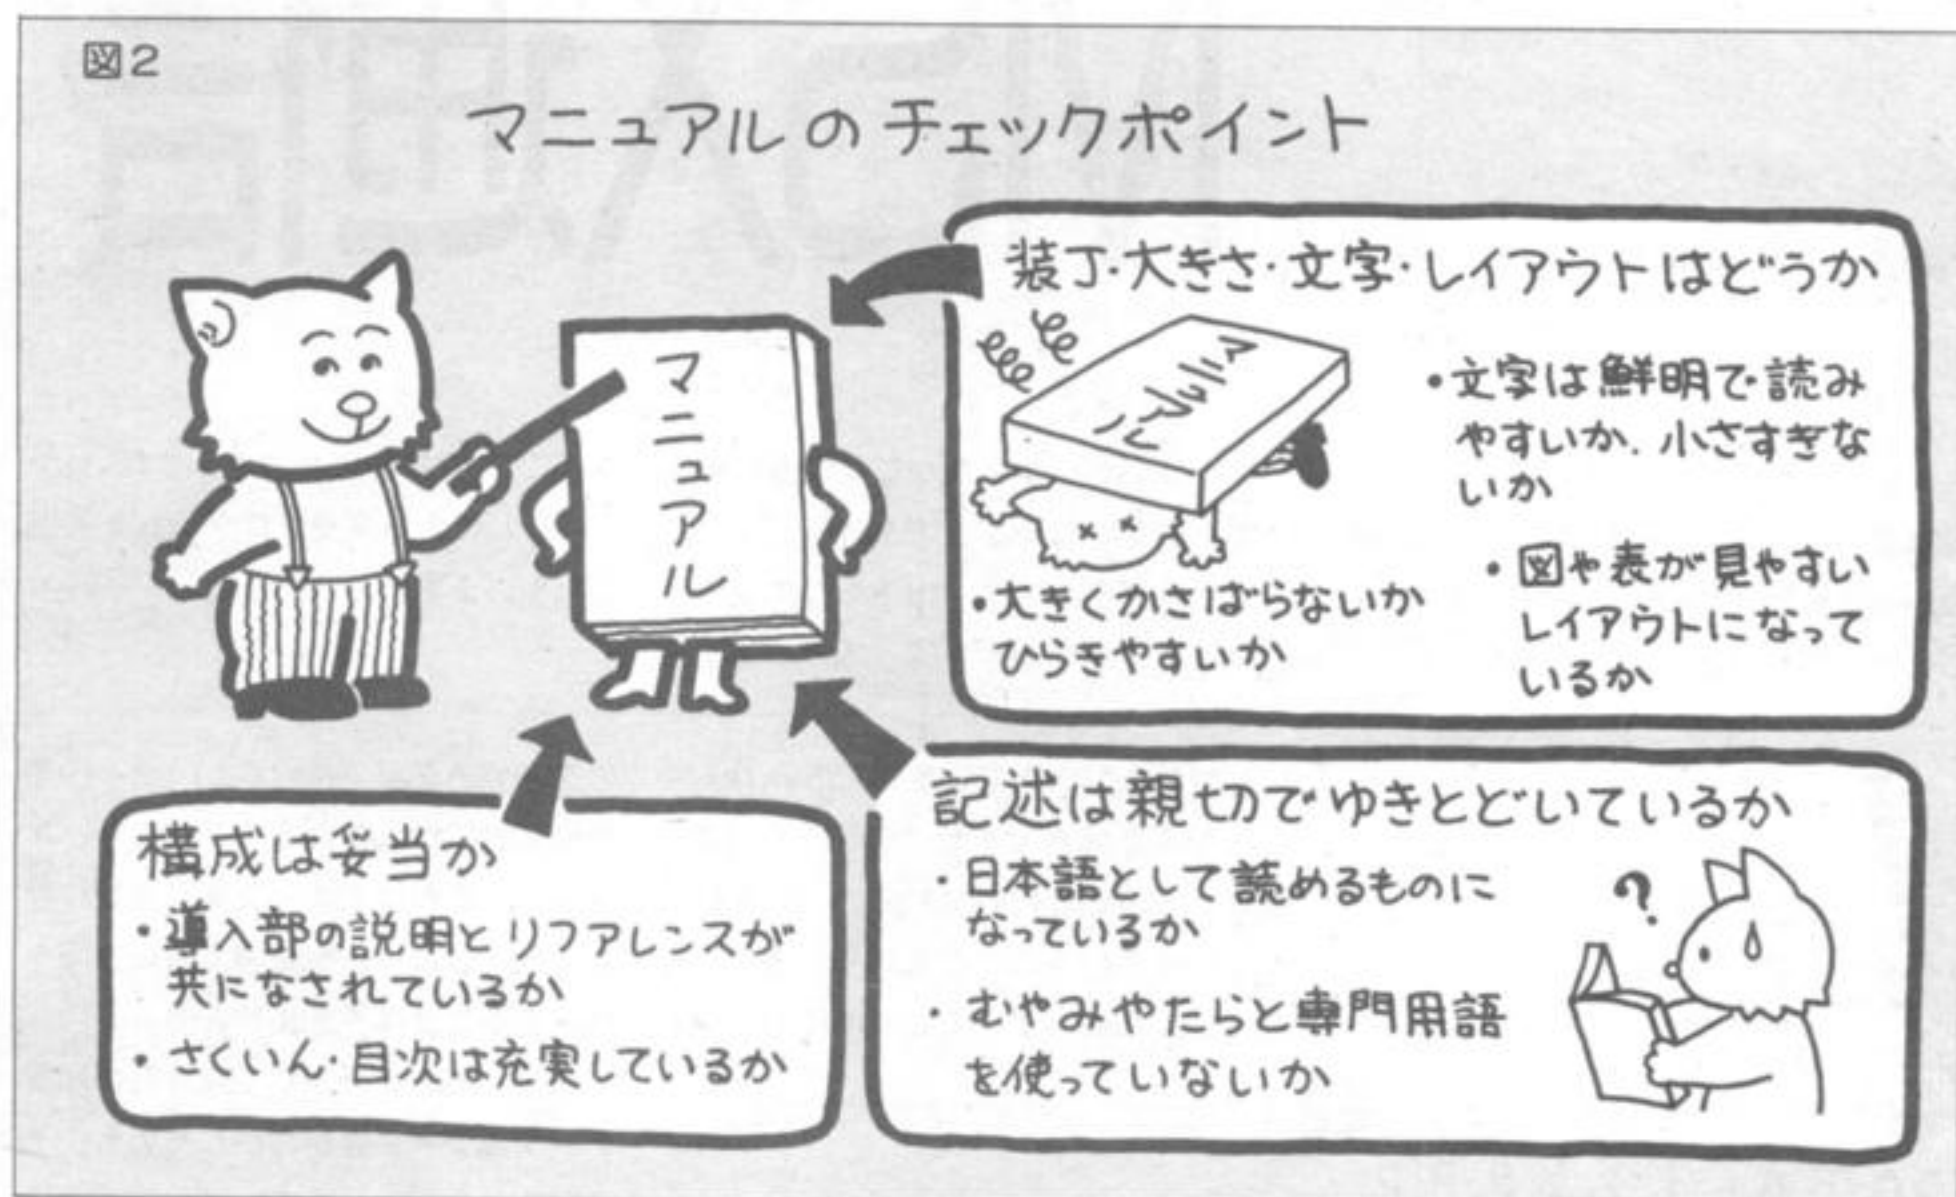 図2
マニュアルのチェックポイント
マニュアル
装丁・大きさ・文字・レイアウトはどうか
マニュアル
・文字は鮮明で読み
やすいか、小さすぎな
いか
・大きくかさばらないか
ひらきやすいか
・図や表が見やすい
レイアウトになって
いるか
構成は妥当か
・導入部の説明とリファレンスが
共になされているか
・さくいん・目次は充実しているか
記述は親切でゆきとどいているか
・日本語として読めるものに
なっているか
?
・むやみやたらと専門用語
を使っていないか